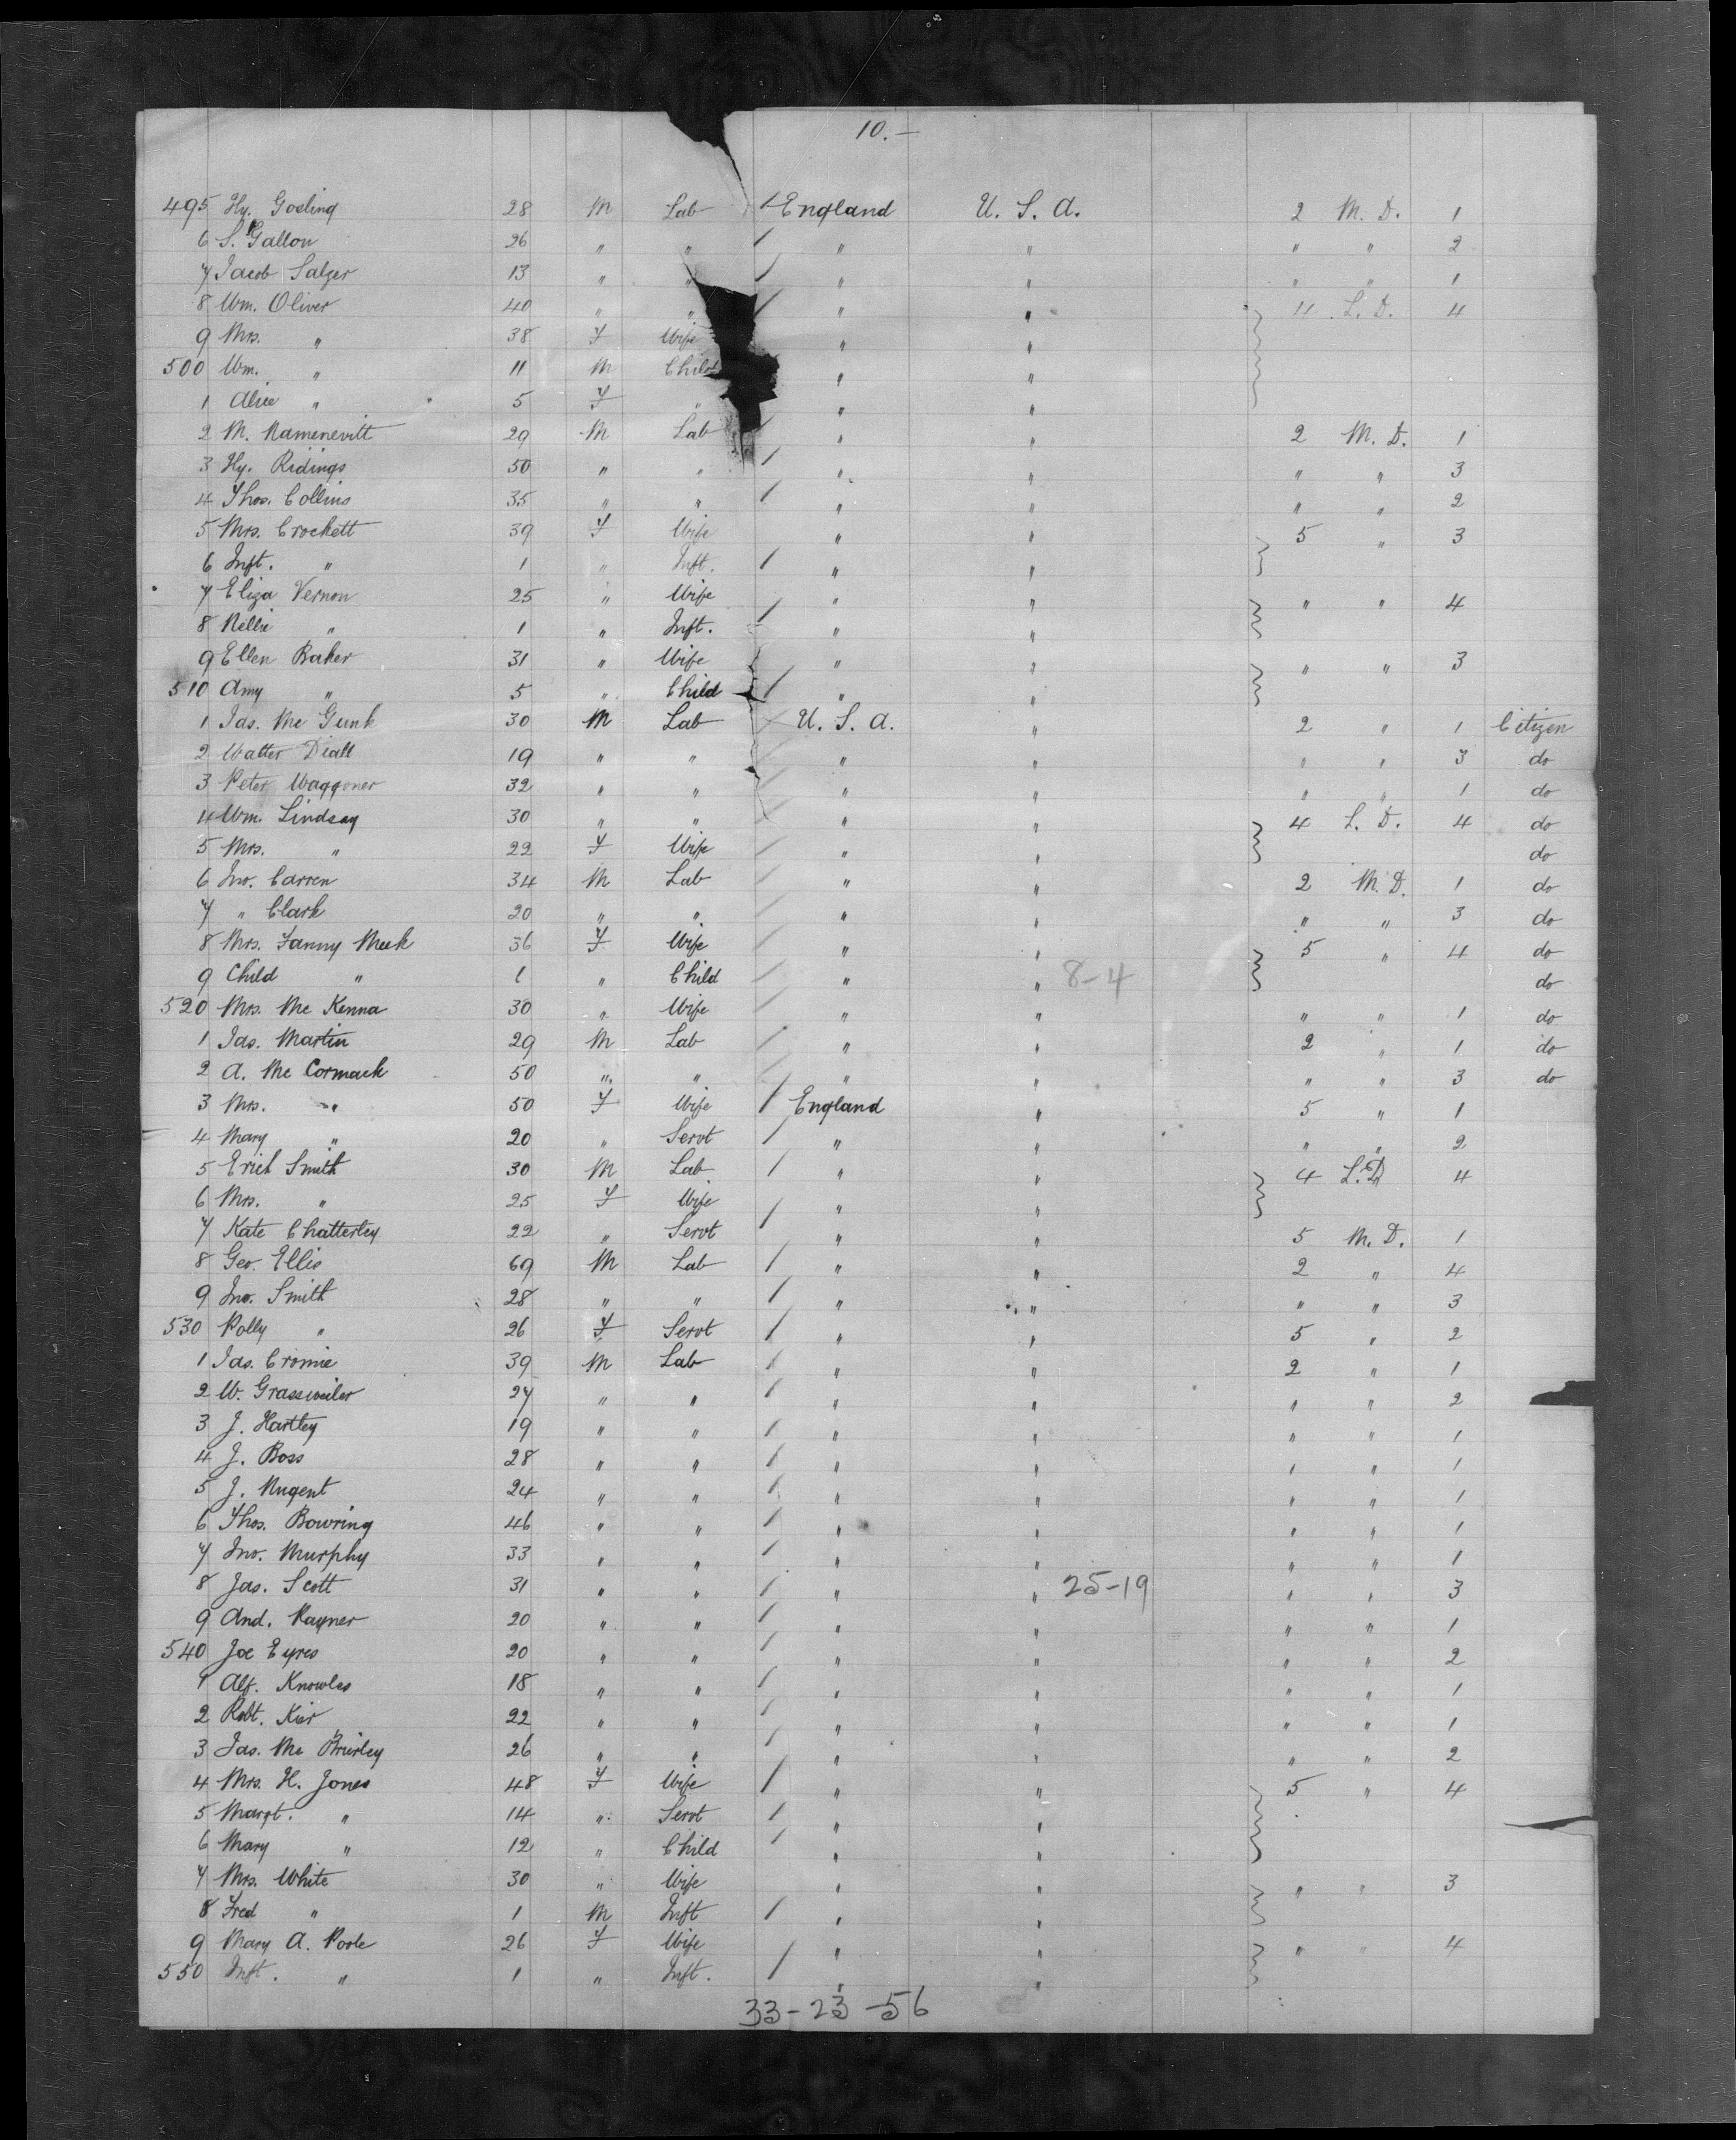 10.—
495 Hy. Gosling 28 M Lab / England U. S. A. 2 M. D. 1
6 S. Gallon 26 " " / " " " " 2
7 Jacob Salger 13 " " / " " " " 1
8 Wm. Oliver 40 " " / " " 4 L. D. 4
9 Mrs. " 38 F Wife " "
500 Wm. " 11 M Child " "
1 Alice " 5 F " " "
2 M. Kamenevitt 29 M Lab / " " 2 M. D. 1
3 Hy. Ridings 50 " " / " " " " 3
4 Thos. Collins 35 " " / " " " " 2
5 Mrs. Crockett 39 F Wife " " 5 " 3
6 Inft. " 1 " Inft. / " "
7 Eliza Vernon 25 " Wife " " " " 4
8 Nellie " 1 " Inft. / " "
9 Ellen Baker 31 " Wife " " " " 3
510 Amy " 5 " Child / " "
1 Jas. Mc Gunk 30 M Lab / U. S. A. " 2 " 1 Citizen
2 Walter Diall 19 " " / " " " " 3 do
3 Peter Waggoner 32 " " / " " " " 1 do
4 Wm. Lindsay 30 " " / " " 4 L. D. 4 do
5 Mrs. " 22 F Wife / " " do
6 Jno. Carren 34 M Lab / " " 2 M. D. 1 do
7 " Clark 20 " " / " " " " 3 do
8 Mrs. Fanny Meek 36 F Wife / " " 5 " 4 do
9 Child " 1 " Child / " " 8-4 do
520 Mrs. Mc Kenna 30 " Wife / " " " " 1 do
1 Jas. Martin 29 M Lab / " " 2 " 1 do
2 A. Mc Cormack 50 " " / " " " " 3 do
3 Mrs. " 50 F Wife / England " 5 " 1
4 Mary " 20 " Servt / " " " " 2
5 Erich Smith 30 M Lab / " " 4 L. D 4
6 Mrs. " 25 F Wife " "
7 Kate Chatterley 22 " Servt / " " 5 M. D. 1
8 Geo. Ellis 69 M Lab / " " 2 " 4
9 Jno. Smith 28 " " / " " " " 3
530 Polly " 26 F Servt / " " 5 " 2
1 Jas. Cromie 39 M Lab / " " 2 " 1
2 W. Grassweiler 27 " " / " " " " 2
3 J. Hartley 19 " " / " " " " 1
4 J. Boss 28 " " / " " " " 1
5 J. Nugent 24 " " / " " " " 1
6 Thos. Bowring 46 " " / " " " " 1
7 Jno. Murphy 33 " " / " " " " 1
8 Jas. Scott 31 " " / " " 25-19 " " 3
9 And. Rayner 20 " " / " " " " 1
540 Joe Eyres 20 " " / " " " " 2
1 Alf. Knowles 18 " " / " " " " 1
2 Robt. Kier 22 " " / " " " " 1
3 Jas. Mc Brierley 26 " " / " " " " 2
4 Mrs. H. Jones 48 F Wife / " " 5 " 4
5 Margt. " 14 " Servt / " "
6 Mary " 12 " Child / " "
7 Mrs. White 30 " Wife " " " " 3
8 Fred " 1 M Inft / " "
9 Mary A. Poole 26 F Wife " " " " 4
550 Inft. " 1 " Inft. / " "
33-23-56